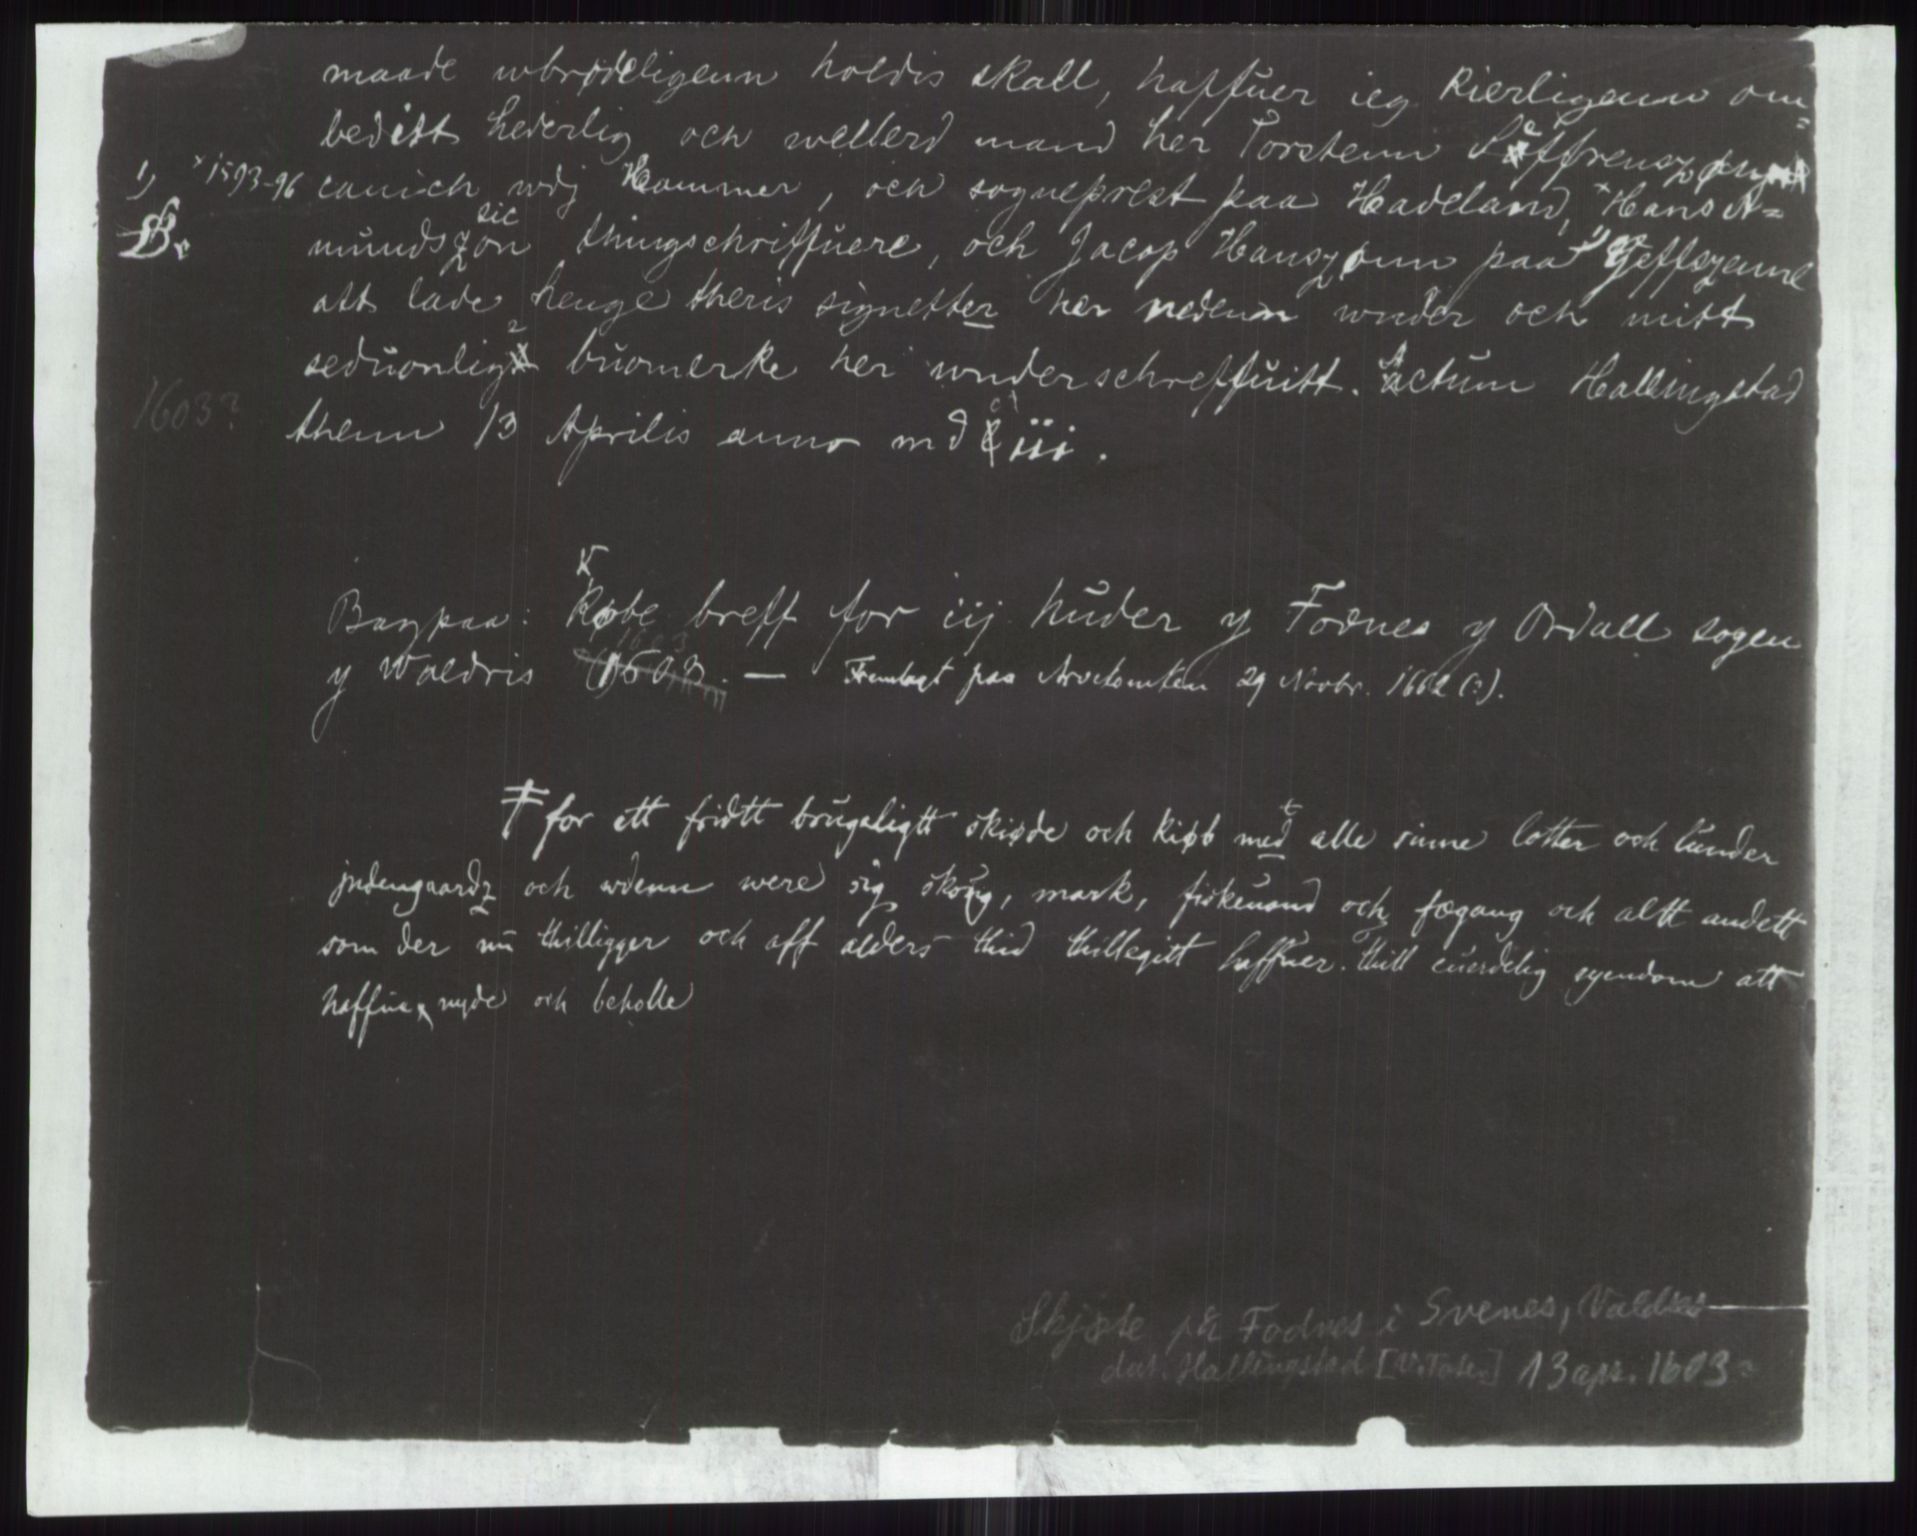 maade wbrødeligenn holdis skall, haffuer ieg kierligenn om=
beditt hederlig och wellerd mand her Torstenn Seffrensz
1) × 1593-96 canich wdj Hammer, och sogneprest paa Hadeland, × Hans A=
mundszøn sic thingschriffuere, och Jacop Hanszønn paa 1) Geffszenne
att lade henge theris signetter her nedenn wnder och mitt
seduonlig buomerke her wnderschreffuitt. Actum Hallingstad
1603?
thenn 13 Aprilis anno md iii.
Bagpaa: Købe breff for iij huder y Fodnes y Ordall sogen
y Waldris 1603 — Fremlagt paa Arvetomten 29 Novbr. 1662 (?).
for ett fridtt brugeligtt skiøde och kiøb med alle sinne lotter och lunder
indengaardz och wdenn were sig skoug, mark, fiskeuand och fægang och altt andett
som der nu thilligger och aff alders thid thillegitt haffuer. thill euerdelig eyendom att
haffue, nyde och beholle
Skjøte på Fodnes i Svenes, Valdres
dat. Hallingstad [V. Toten] 13 apr. 1603?